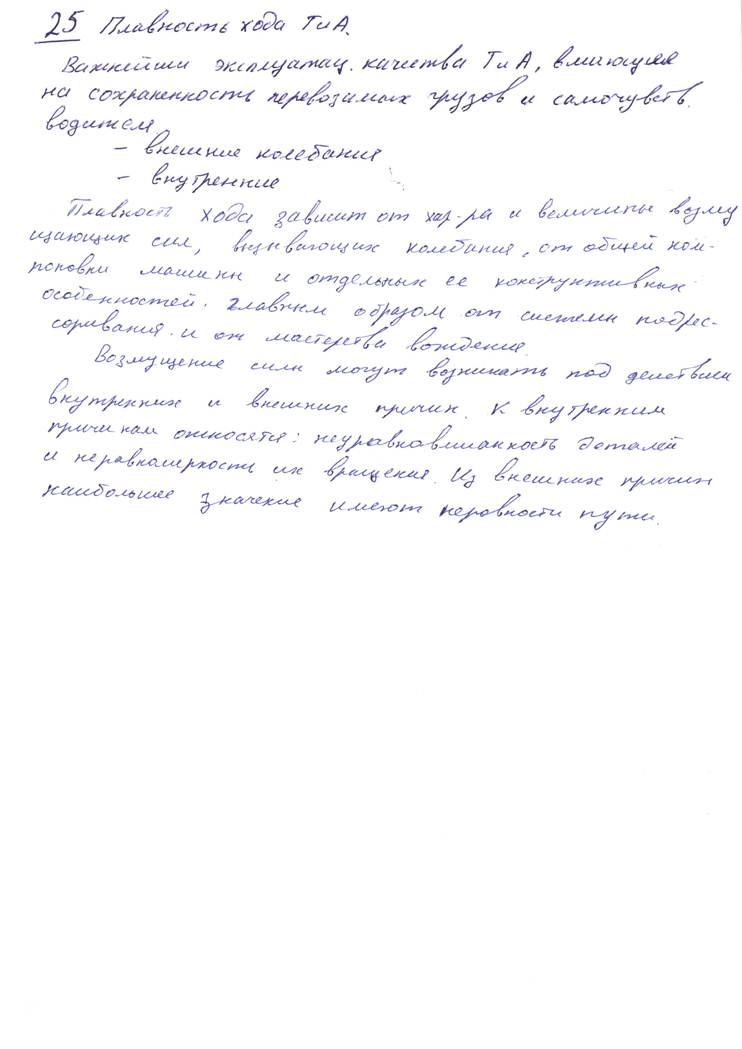 25 Плавность хода ТиА.
Важнейши эксплуатац. качества ТиА, влияющия
на сохраненность перевозимых грузов и самочувств.
водителя
- внешние колебания
- внутренние
Плавность хода зависит от хар-ра и величины возму
щающих сил, вызывающих колебания, от общей ком-
поновки машины и отдельных ее конструктивных
особенностей. Главным образом от системы подрес-
соривания. и от мастерства вождения.
Возмущение силы могут возникать под действием
внутренних и внешних причин. К внутренним
причинам относятся: неуравновешанность деталей
и неравномерность их вращения. Из внешних причин
наибольшее значение имеют неровности пути.